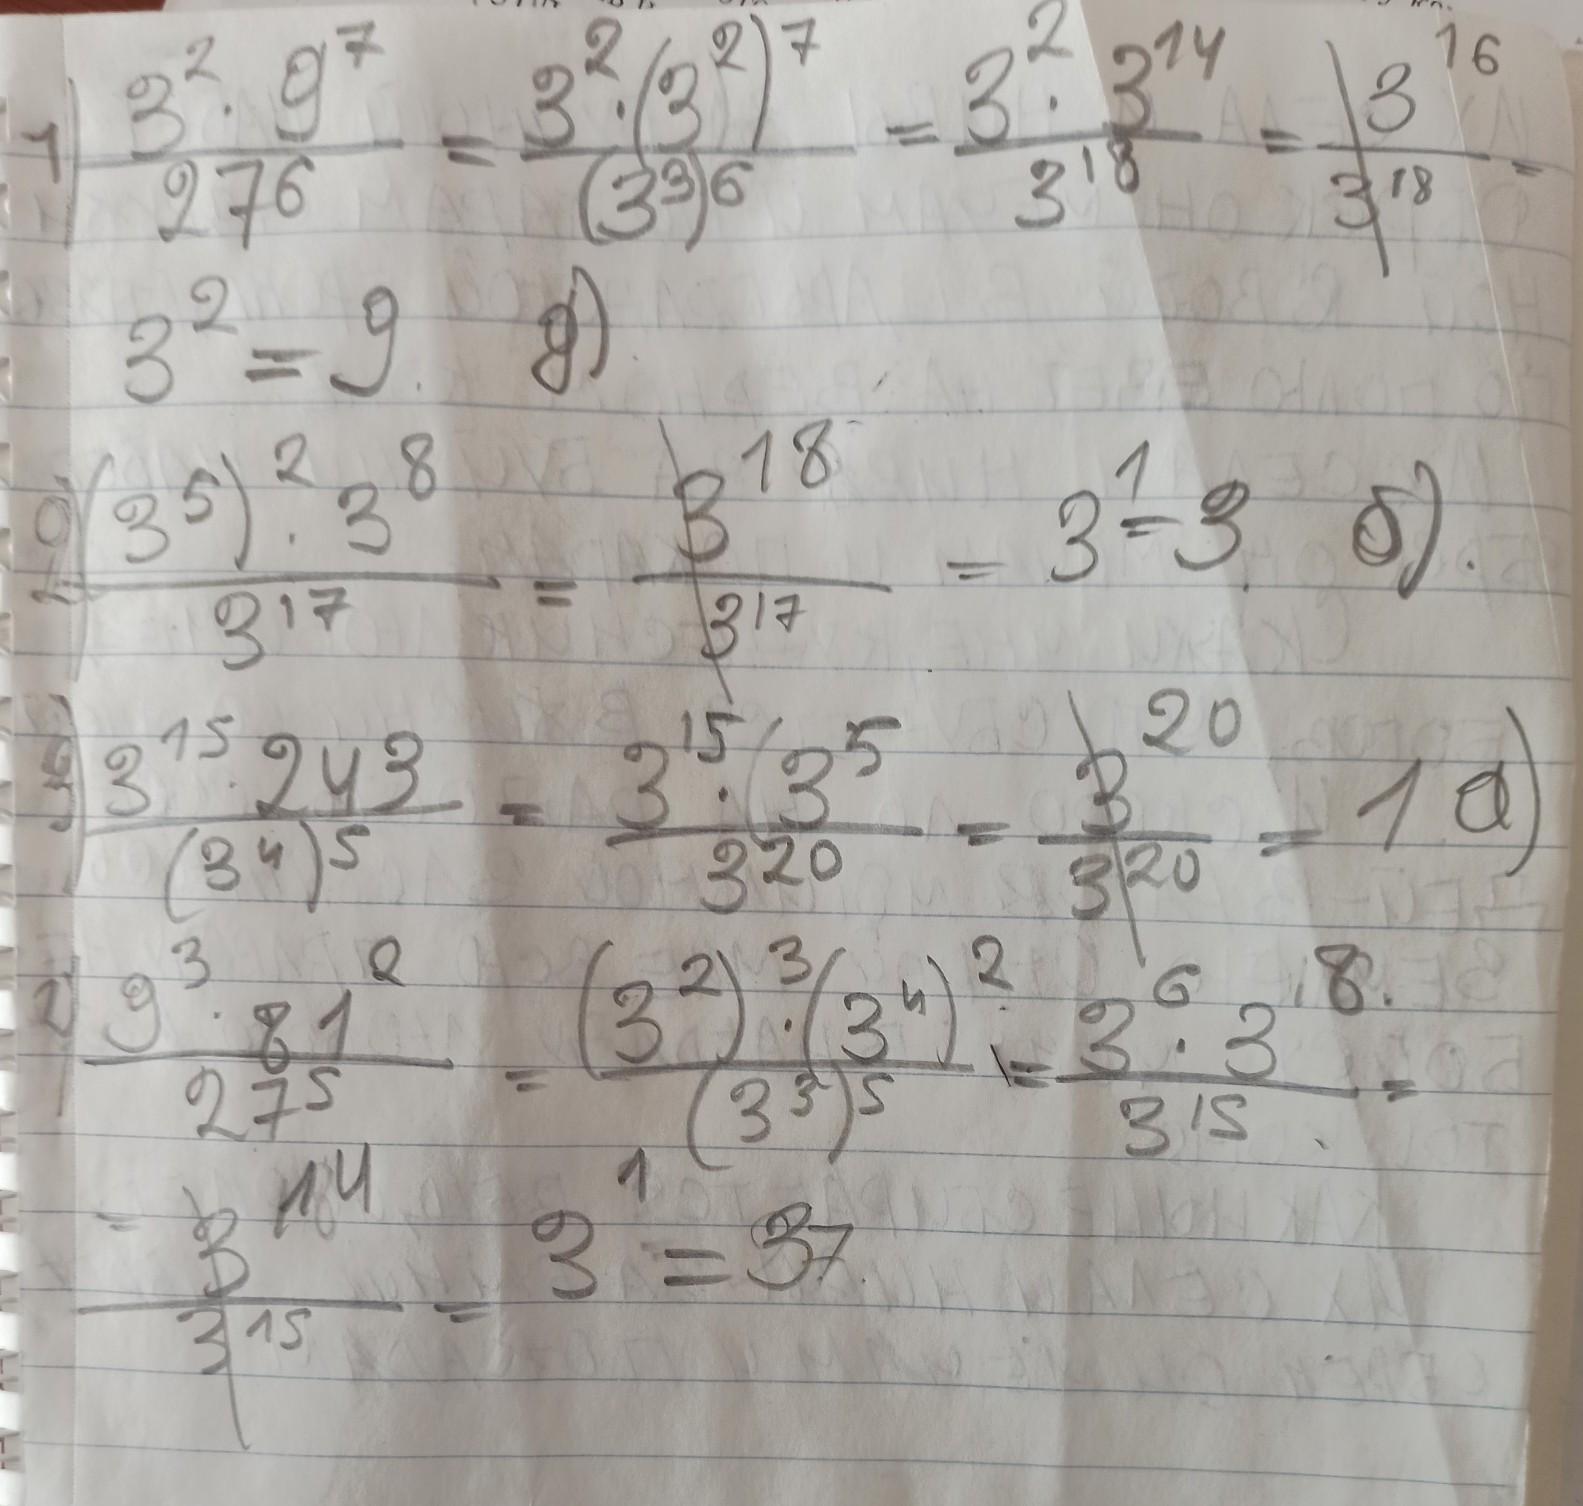 1) (3^2 · 9^7)/(27^6) = (3^2 · (3^2)^7)/((3^3)^6) = (3^2 · 3^14)/(3^18) = 3^16/3^18 =
3^2 = 9. д)
((3^5)^2 · 3^8)/(3^17) = 3^18/3^17 = 3^1 = 3. б).
(3^15 · 243)/((3^4)^5) = (3^15 · (3^5)/(3^20) = 3^20/3^20 = 1 а)
2) (9^3 · 81^2)/(27^5) = ((3^2)^3 · (3^4)^2)/((3^3)^5) = (3^6 · 3^8)/(3^15) =
= 3^14/3^15 = 3^1 =